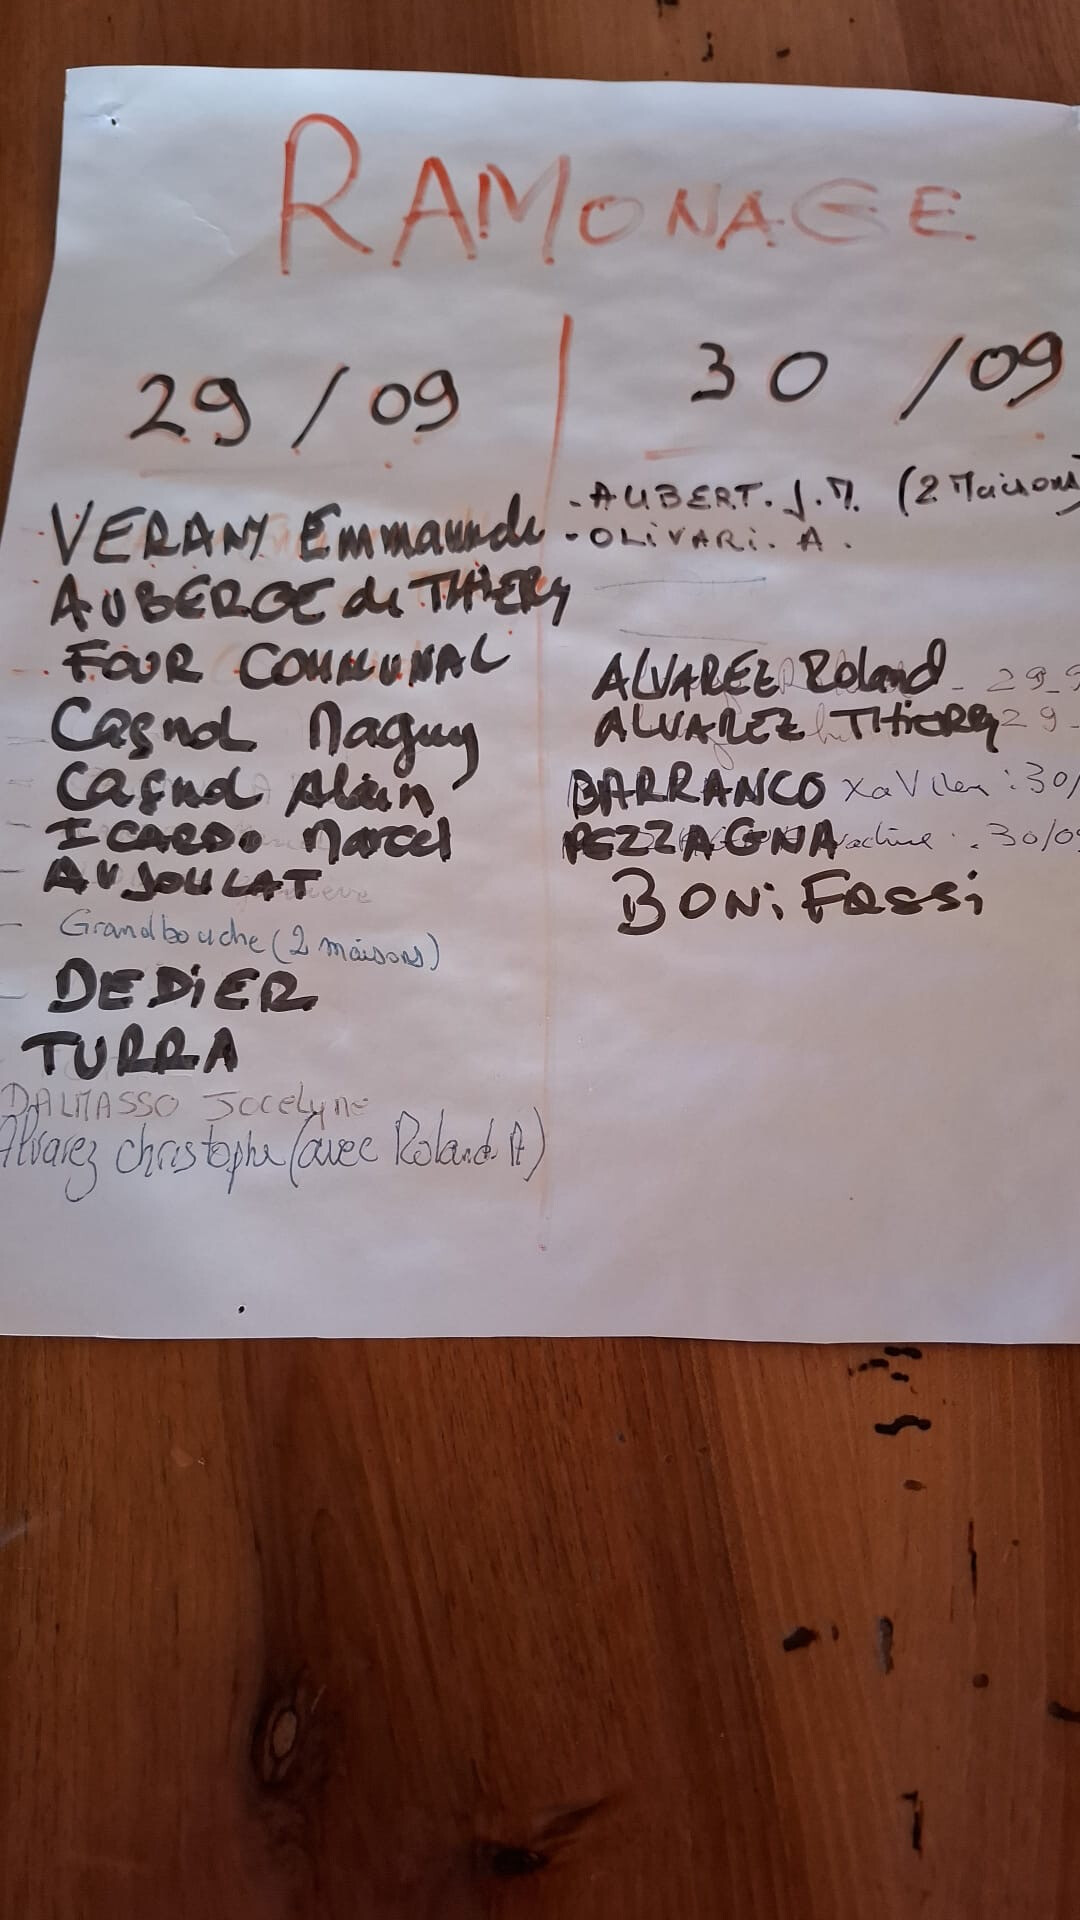 RAMONAGE
29/09
VERANY Emmanuelle
AUBERGE de THIERY
FOUR COMMUNAL
Cagnol Maguy
Cagnol Alain
ICARDO Marcel
AUJOULAT
Grandbouche (2 maisons)
DEDIER
TURRA
DALMASSO Jocelyne
Alvarez christophe (avec Roland A)
30/09
- AUBERT. J. M. (2 Maisons)
- OLIVARI. A.
ALVAREZ Roland - 29-9
ALVAREZ THIERRY 29-
BARRANCO : 30/
PEZZAGNA : 30/09
BONIFASSI